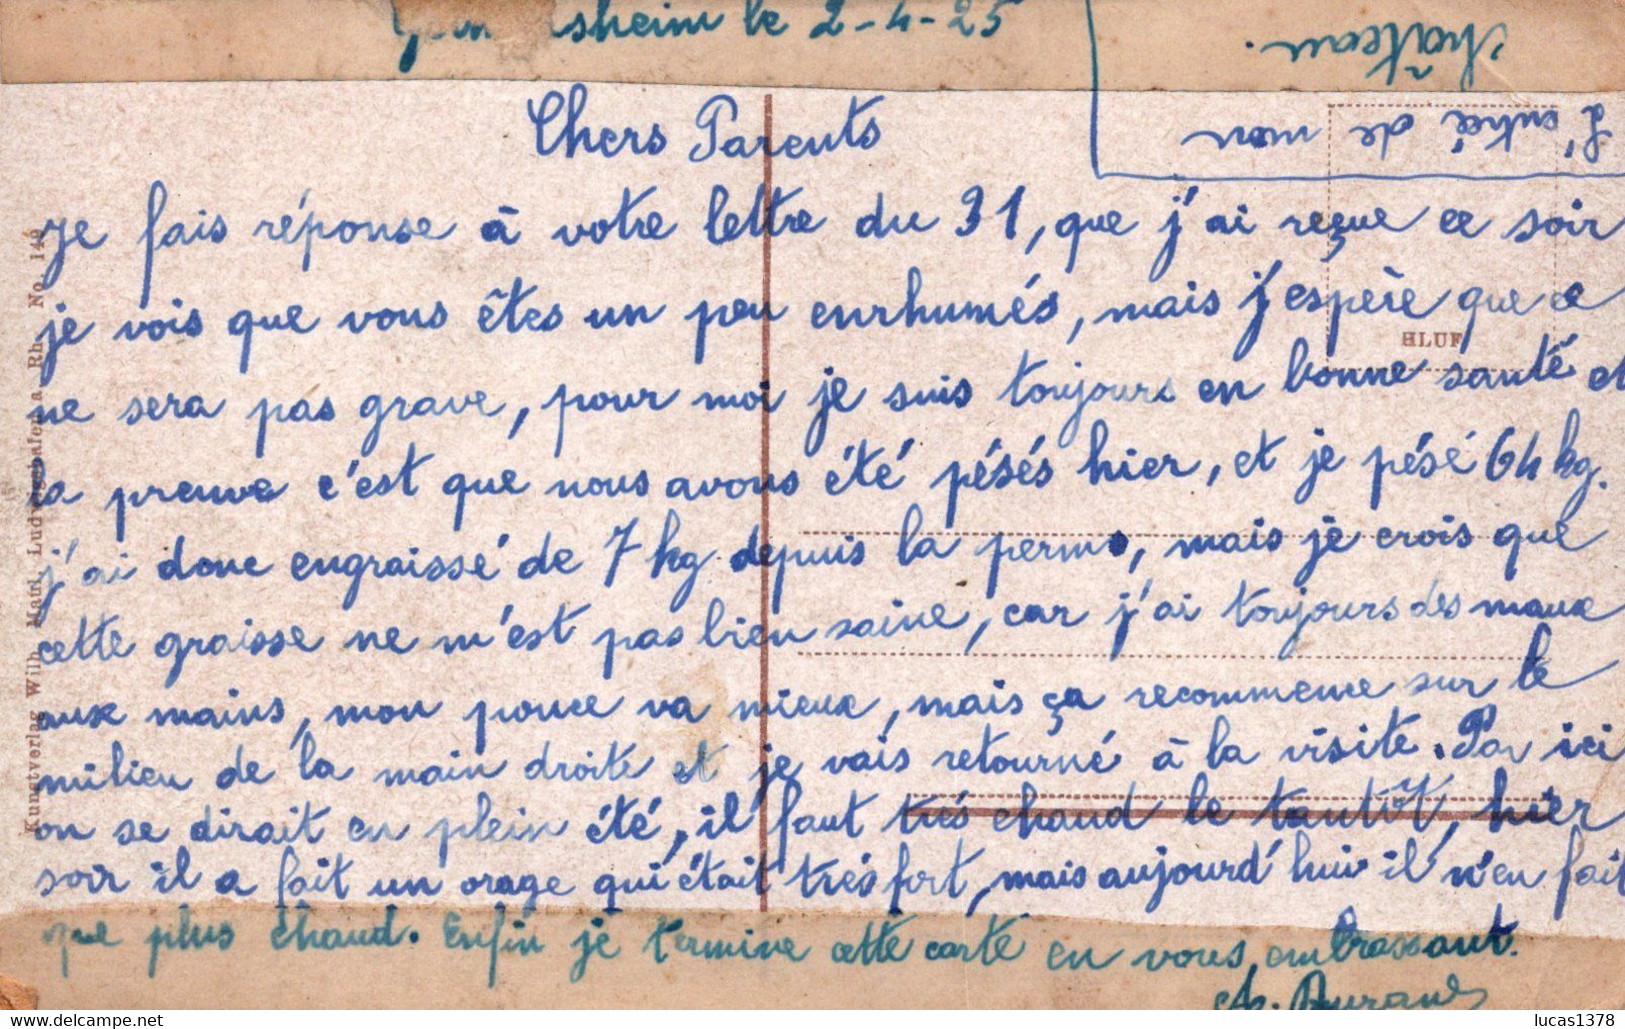 sheim le 2-4-25
L'entrée de mon
château.
Chers Parents
je fais réponse à votre lettre du 31, que j'ai reçue ce soir
je vois que vous êtes un peu enrhumés, mais j'espère que ce
ne sera pas grave, pour moi je suis toujours en bonne santé et
la preuve c'est que nous avons été pésés hier, et je pésé 64 kg.
j'ai donc engraissé de 7 kg depuis la perme, mais je crois que
cette graisse ne m'est pas bien saine, car j'ai toujours des maux
aux mains, mon pouce va mieux, mais ça recommence sur le
milieu de la main droite et je vais retourné à la visite. Par ici
on se dirait en plein été, il faut très chaud le tantôt, hier
soir il a fait un orage qui était très fort, mais aujourd'hui il n'en fait
que plus chaud. Enfin je termine cette carte en vous embrassant.
Durand
Kunstverlag Wilh. Ludwigshafen a. Rh. No. 149
HLUF
lucas1378